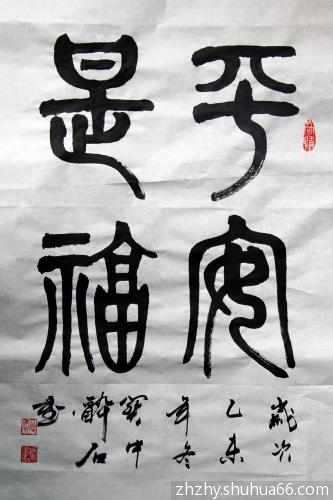 平安
是福
歲次
乙未
年冬
寶中
醉石
书
zhzhyshuhua66.com